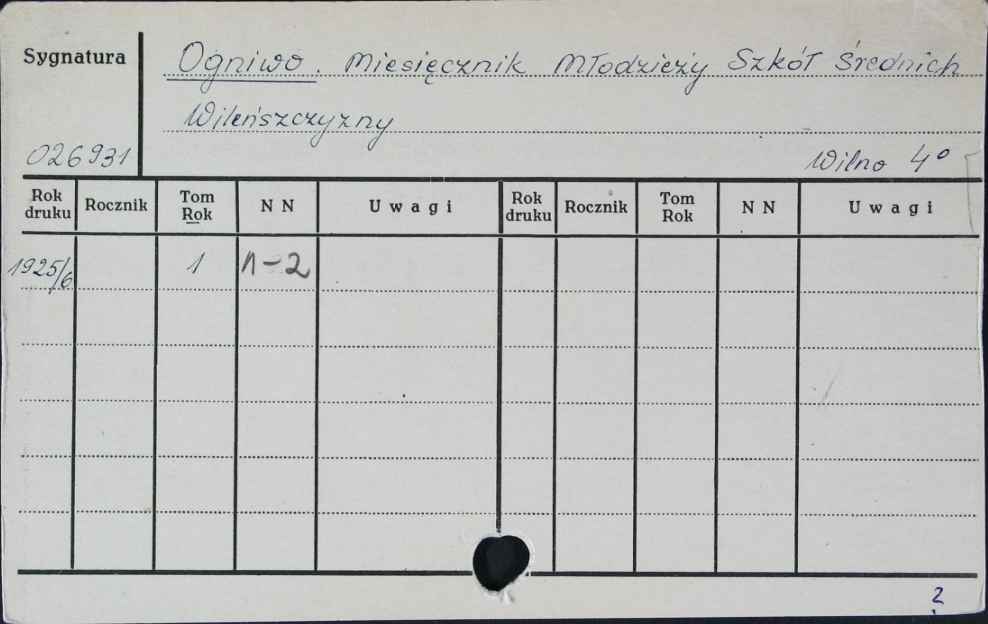 Sygnatura
Ogniwo. Miesięcznik Młodzieży Szkół Średnich
Wileńszczyzny
026931
Wilno 4º
Rok druku Rocznik Tom Rok NN Uwagi Rok druku Rocznik Tom Rok NN Uwagi
1925/6 1 1-2
2